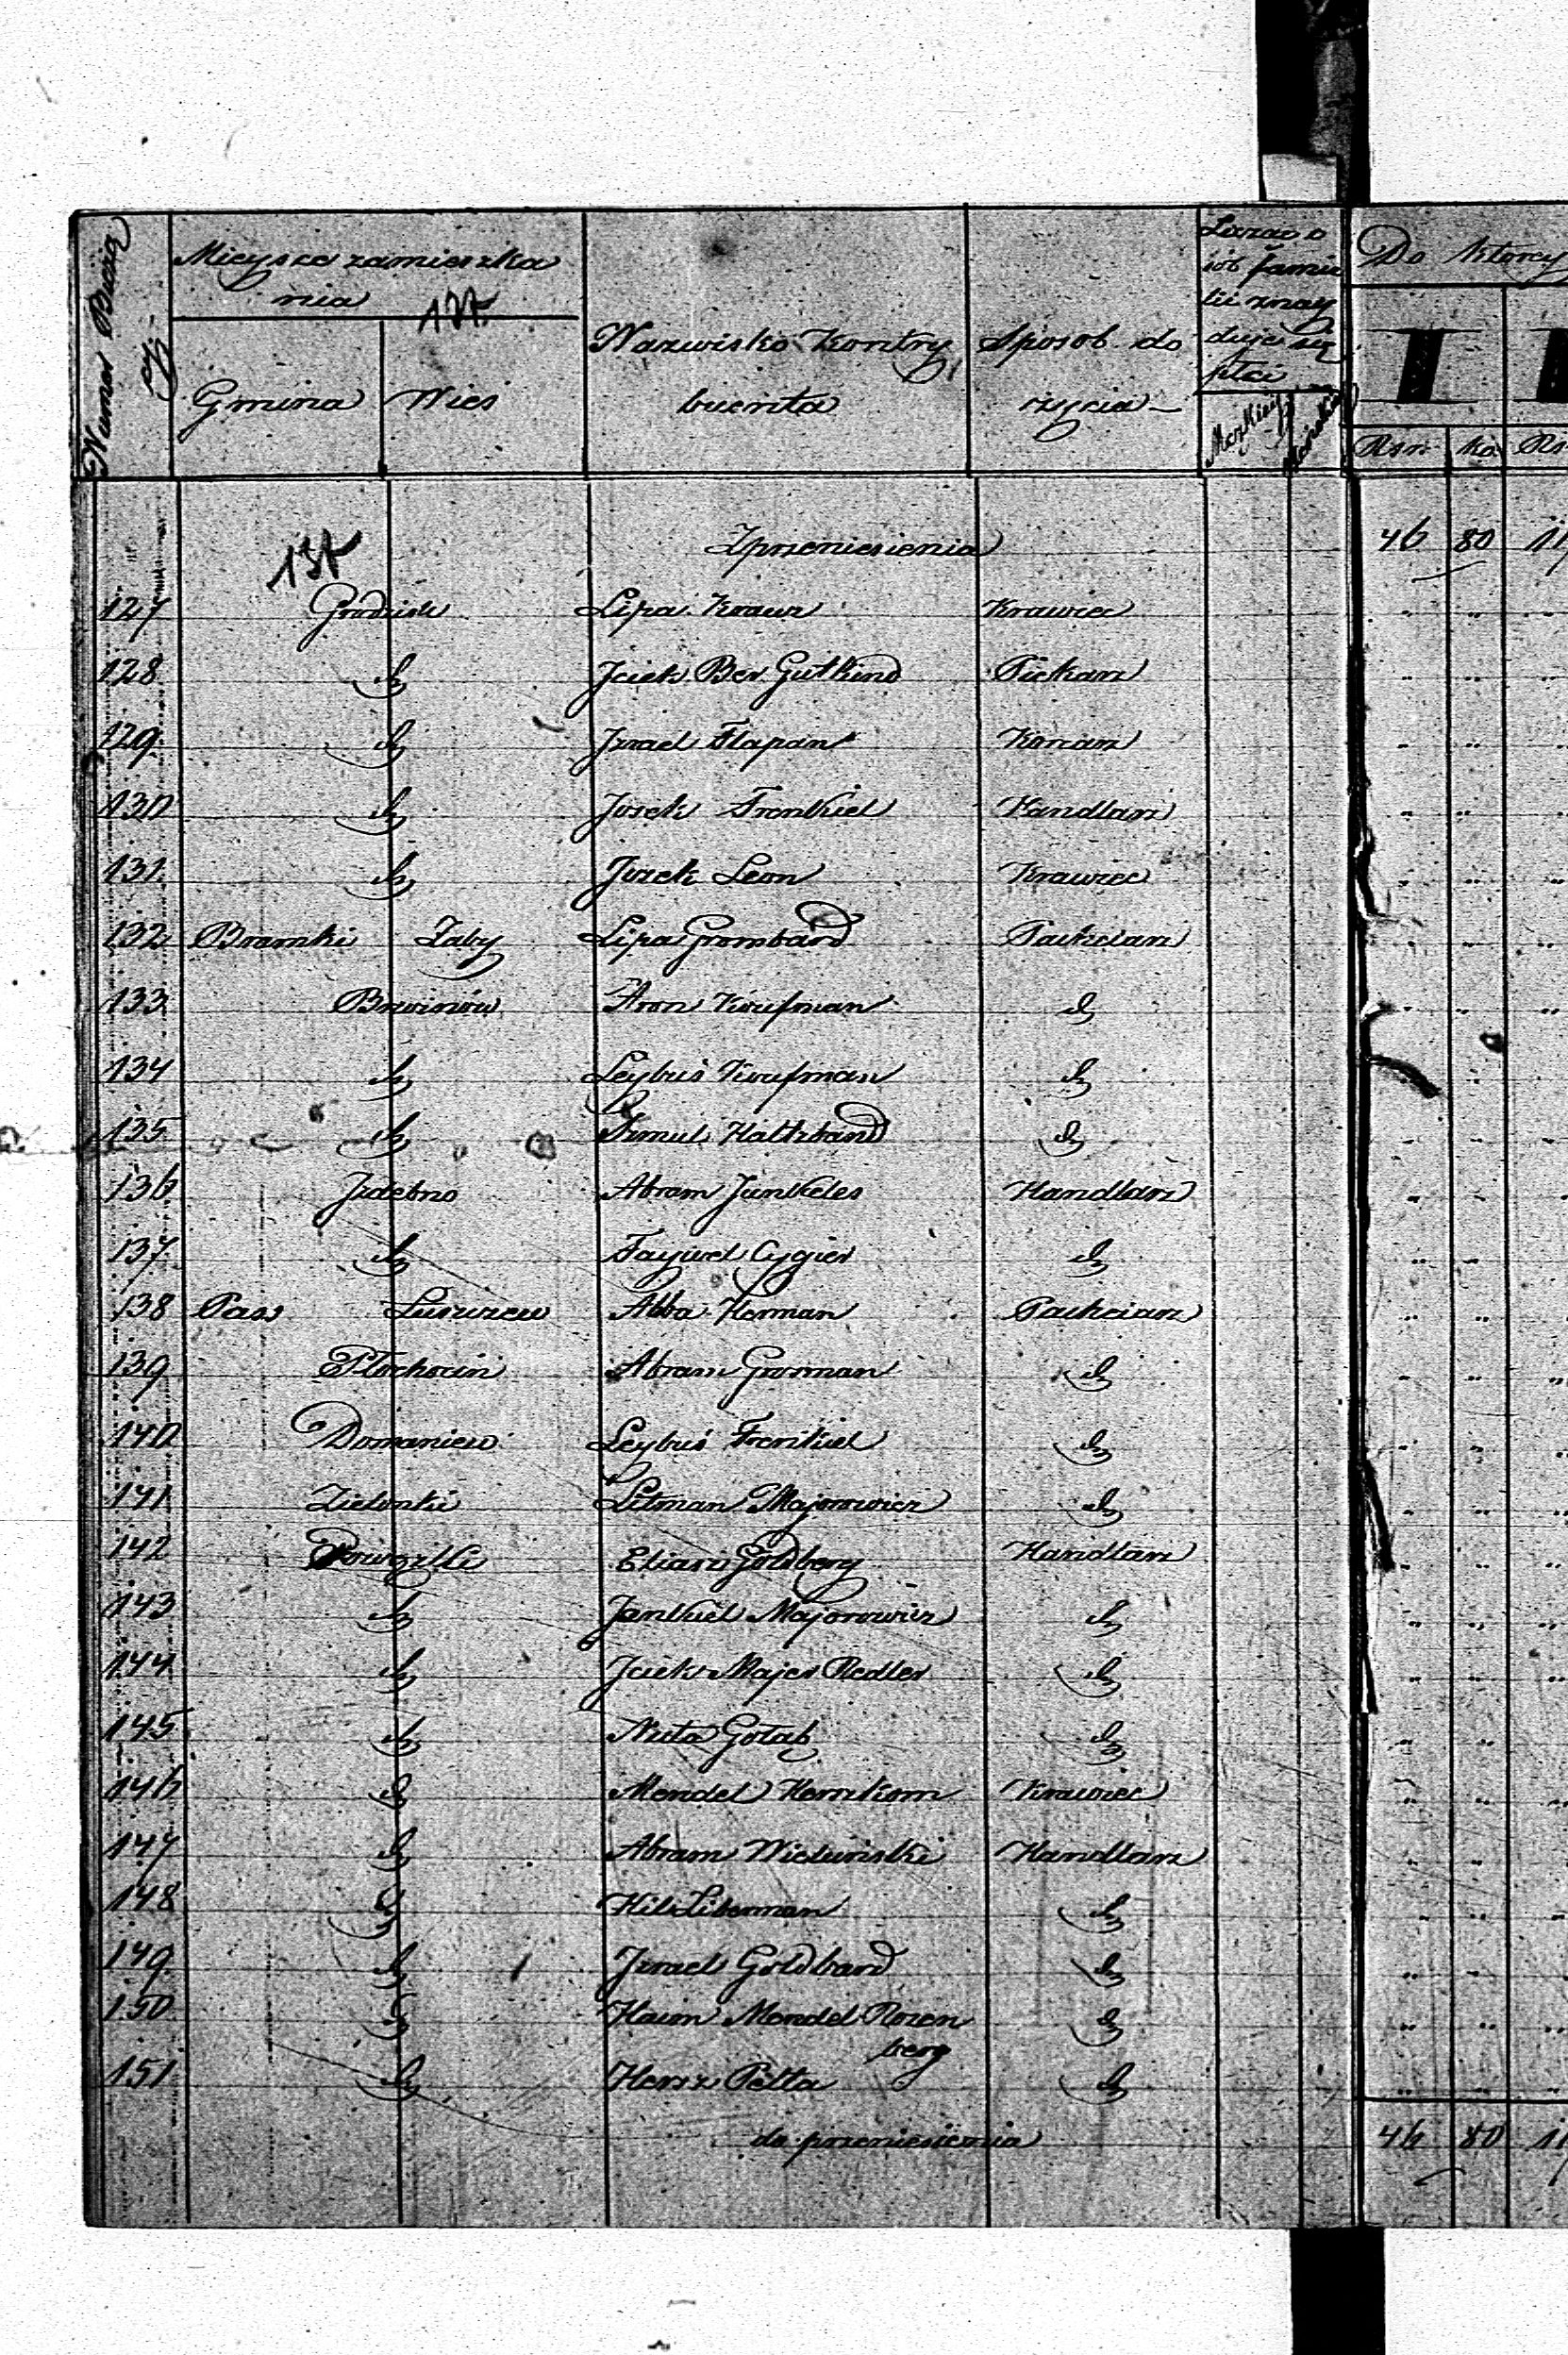 Numer Bieżący
Mieysce zamieszka
nia
137.
Gmina Wieś
Nazwisko Kontry
buenta
Sposob do
życia
Liczba o
sób famie
lii znay
duje się
płci
Męzkiey Żeńskiey
Do ktorey
I
Rsr. Ko. Rs
137
Zprzeniesienia 46 80
127 Grodzisk Lipa Krawz Krawiec
128 d Jciek Ber Gutkind Piekarz
129 d Jzrael Flapan
130 d Josek Frenkiel Handlarz
131 d Jcek Leon Krawiec
132 Bramki Żaby Lipa Grombard Pachciarz
133 Brwinów Aron Kaufman d
134 d Leybuś Kaufman d
135 d Szmul Haltzband d
136 Jzdebno Abram Junkeles Handlarz
137 d Faywel Cygier d
138 Pass Abba Herman Pachciarz
139 Płochocin Abram Grosman d
140 Domaniew Leybuś Frenkiel d
141 Zielonki Litman Majorowicz d
142 Powązki Eliasz Goldberg Handlarz
143 d Jankiel Majorowicz d
144 d Jciek Majer Redler d
145 d Nuta Gołąb d
146 d Mendel Krawiec
147 d Abram Wieluński Handlarz
148 d Hil Liberman d
149 d Jzrael Goldbard d
150 d Haim Mendel Rozen d
berg
151 d Hersz Pelta d
do przeniesienia 46 80